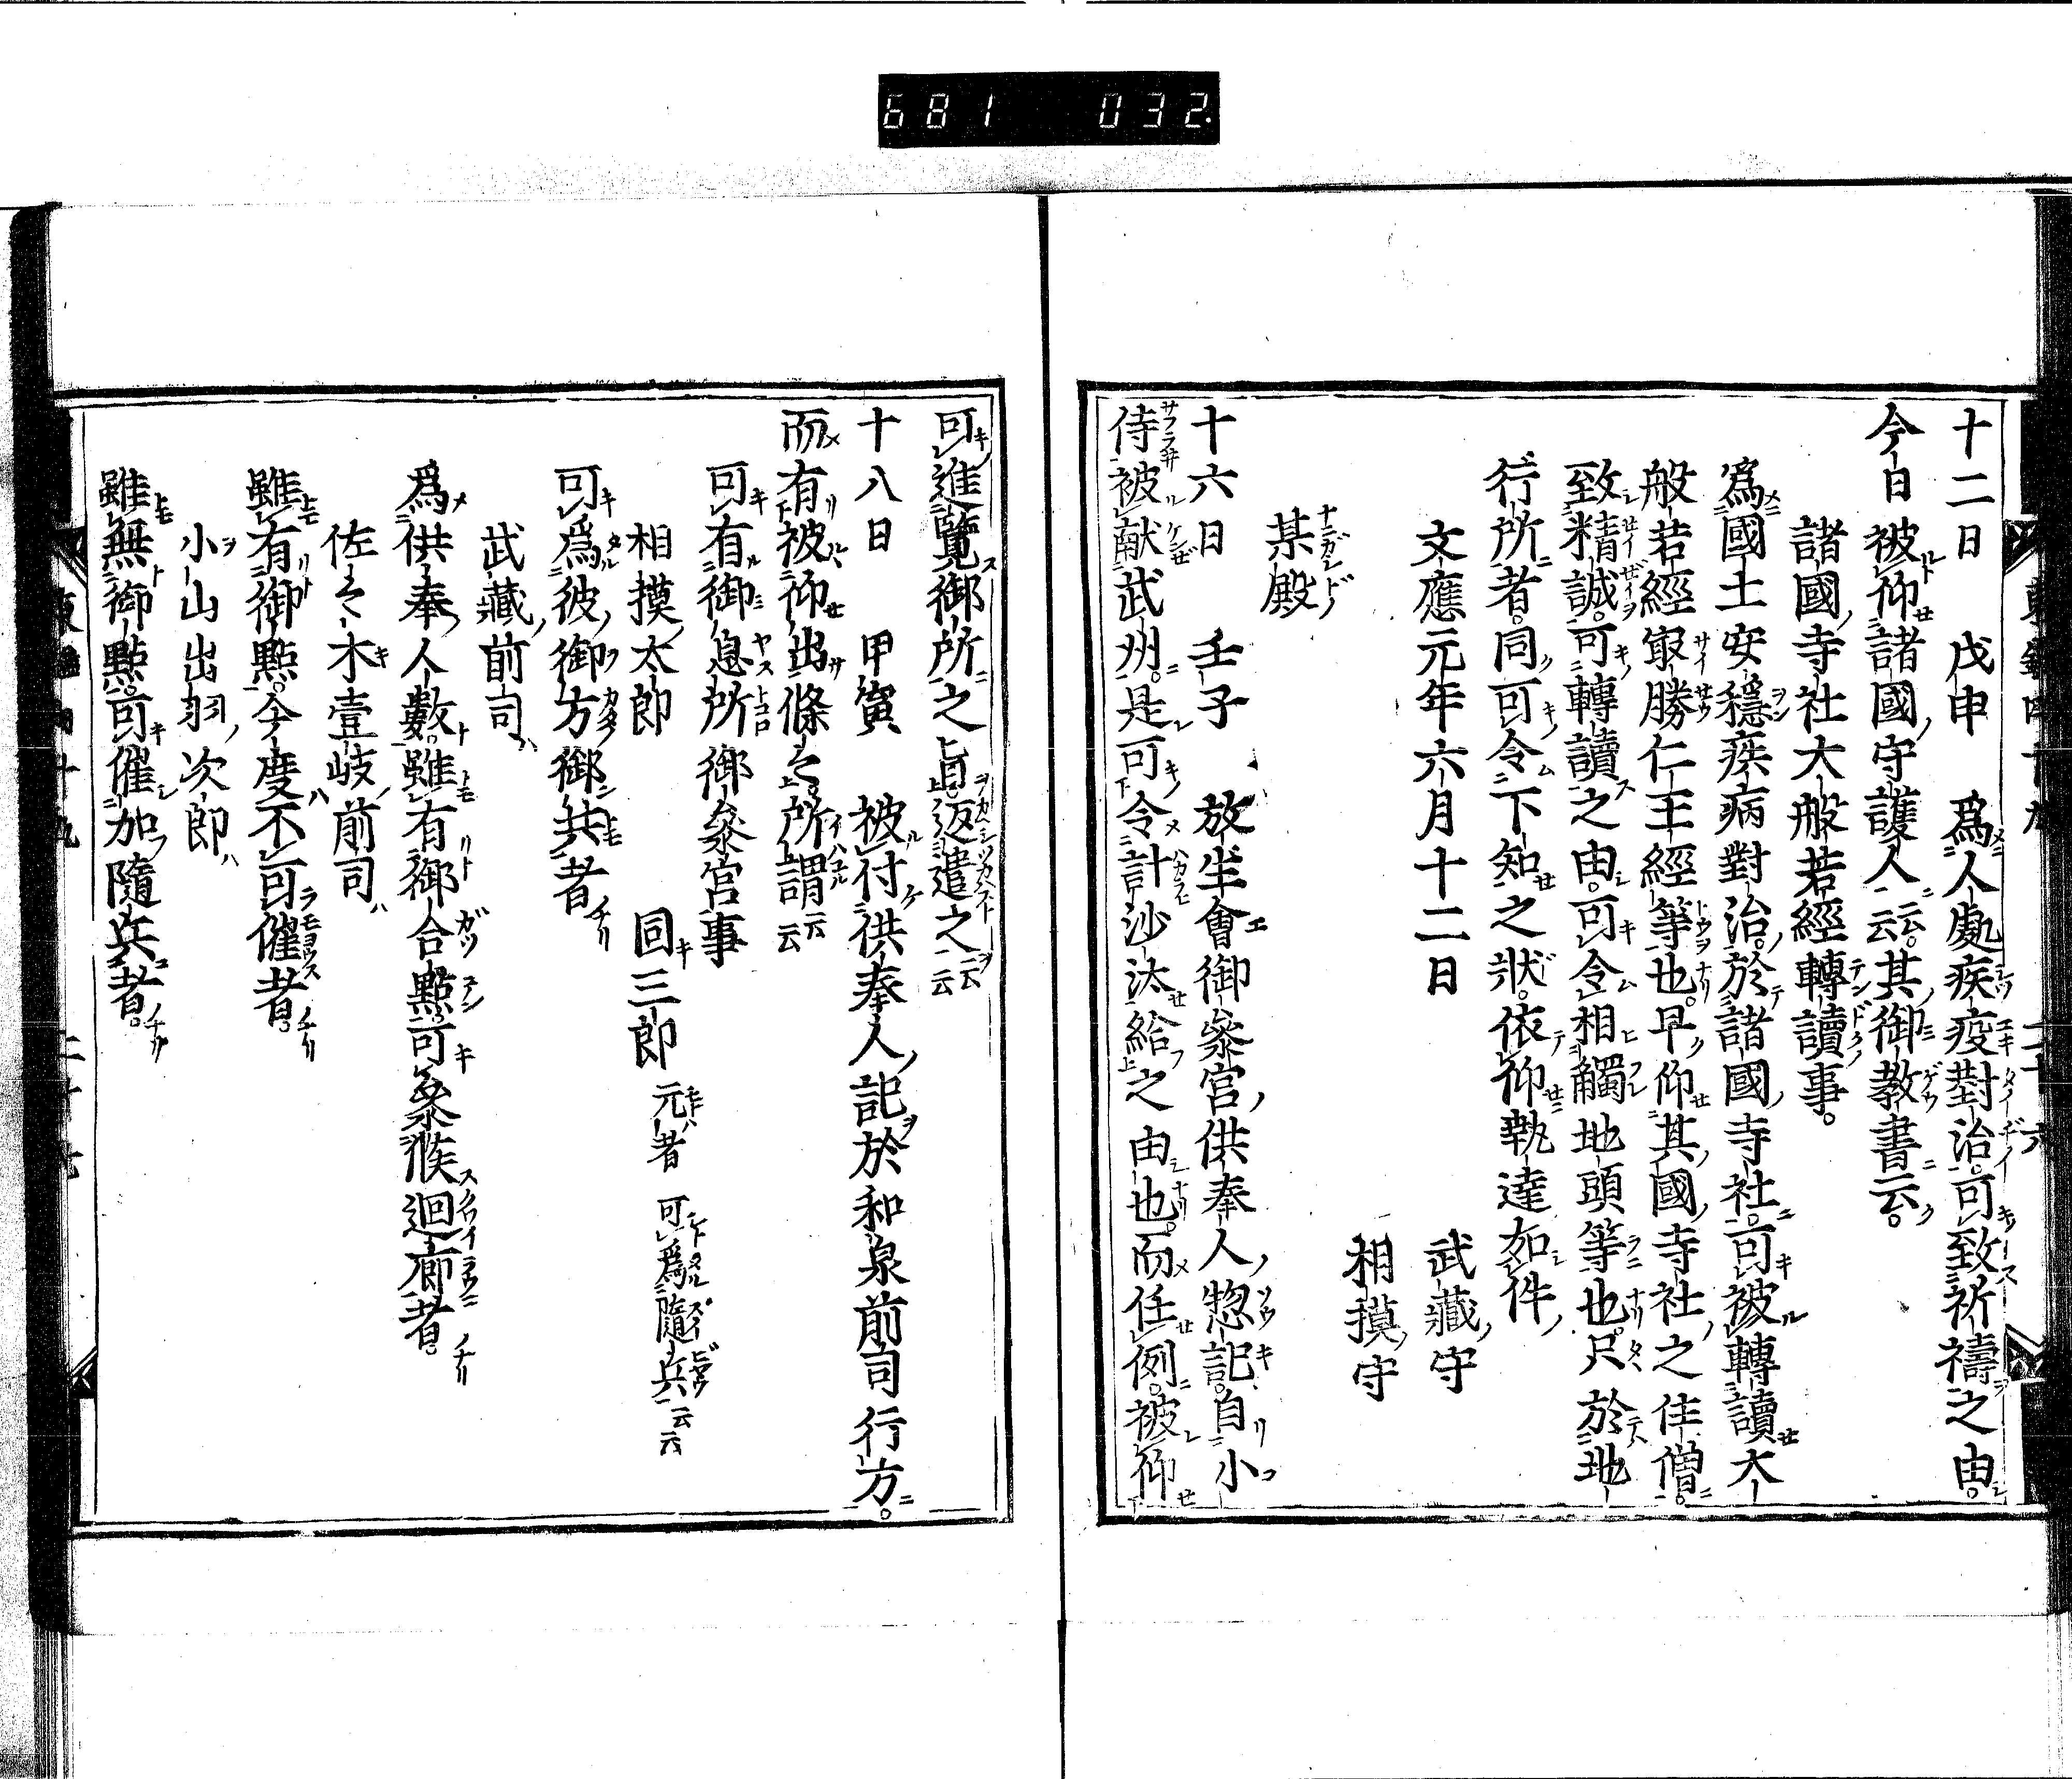 681 032.
十二日 戊申 爲人處疾疫對治可致祈禱之由。
今日被仰諸國守護人云云。其御教書云。
諸國寺社大般若經轉讀事。
爲國土安穩疾病對治。於諸國寺社。可被轉讀大
般若經最勝仁王經等也。早仰其國寺社之住僧。
致精誠。可轉讀之由。可令相觸地頭等也。只於地
行所者。同可令下知之狀。依仰執達如件
文應元年六月十二日 武藏守
相摸守
某殿
十六日 壬子 放生會御參宮供奉人惣記。自小
侍被献武州。是可令計沙汰給之由也。而任例。被仰
可進覽御所之旨。返遣之云云
十八日 甲寅 被付供奉人記於和泉前司行方。
而有被仰出條々。所謂云云
可有御息所御參宮事
相摸太郎 同三郎 元者 可爲隨兵云云
可爲彼御方御共者
武藏前司
爲供奉人數。雖有御合點。可參候廻廊者。
佐々木壹岐前司
雖有御點。今度不可催者。
小山出羽次郎
雖無御點。可催加隨兵者。